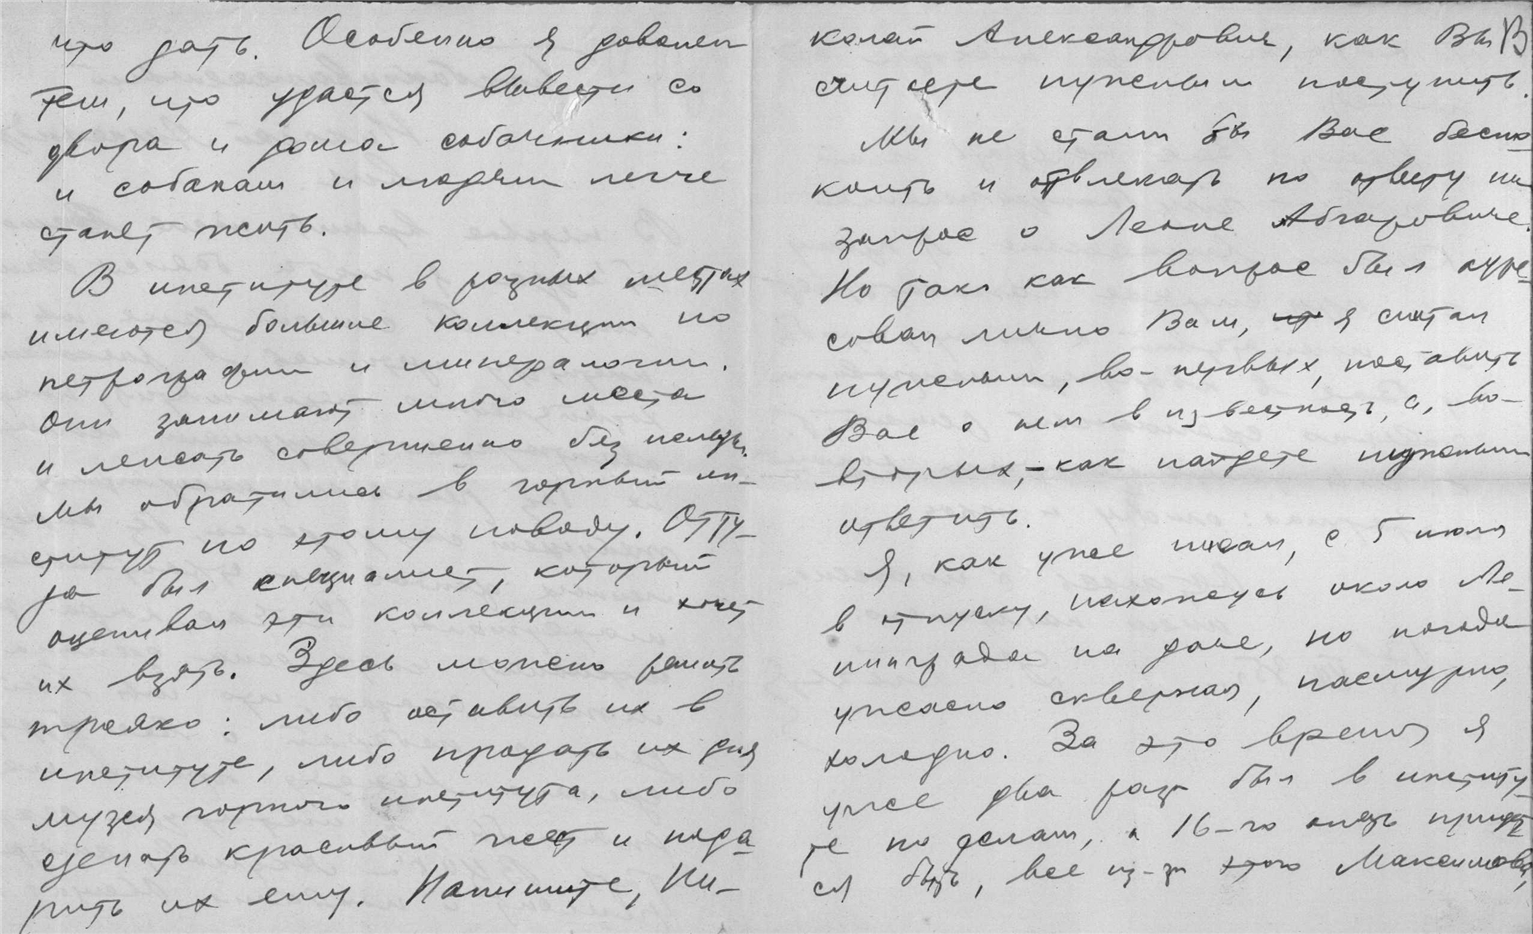 что дать. Особенно я доволен
тем, что удастся вывести со
двора и дома собачники:
и собакам и людям легче
станет жить.
В институте в разных местах
имеются большие коллекции по
петрографии и минералогии.
Они занимают много места
и лежать совершенно без пользы.
мы обратились в горный ин-
ститут по этому поводу. Отту-
да был специалист, который
оценивал эти коллекции и хочет
их взять. Здесь можно решать
трояко: либо оставить их в
институте, либо продать их для
музея горного института, либо
сделать красивый жест и пода-
рить их ему. Напишите, Ни-
колай Александрович, как Вы В
считаете нужным поступить.
Мы не стали бы Вас беспо
коить и отвлекать по ответу на
запрос о Леоне Абгаровиче.
Но так как вопрос был адре
сован лично Вам, я считал
нужным, во-первых, поставить
Вас о нем в известность, а, во-
вторых, - как найдете нужным
ответить.
Я, как уже писал, с 5 июля
в отпуску, нахожусь около Ле-
нинграда на даче, но погода
ужасно скверная, пасмурно,
холодно. За это время я
уже два раза был в институ-
те по делам, а 16-го опять придет
ся быть, все из-за этого Максимова,